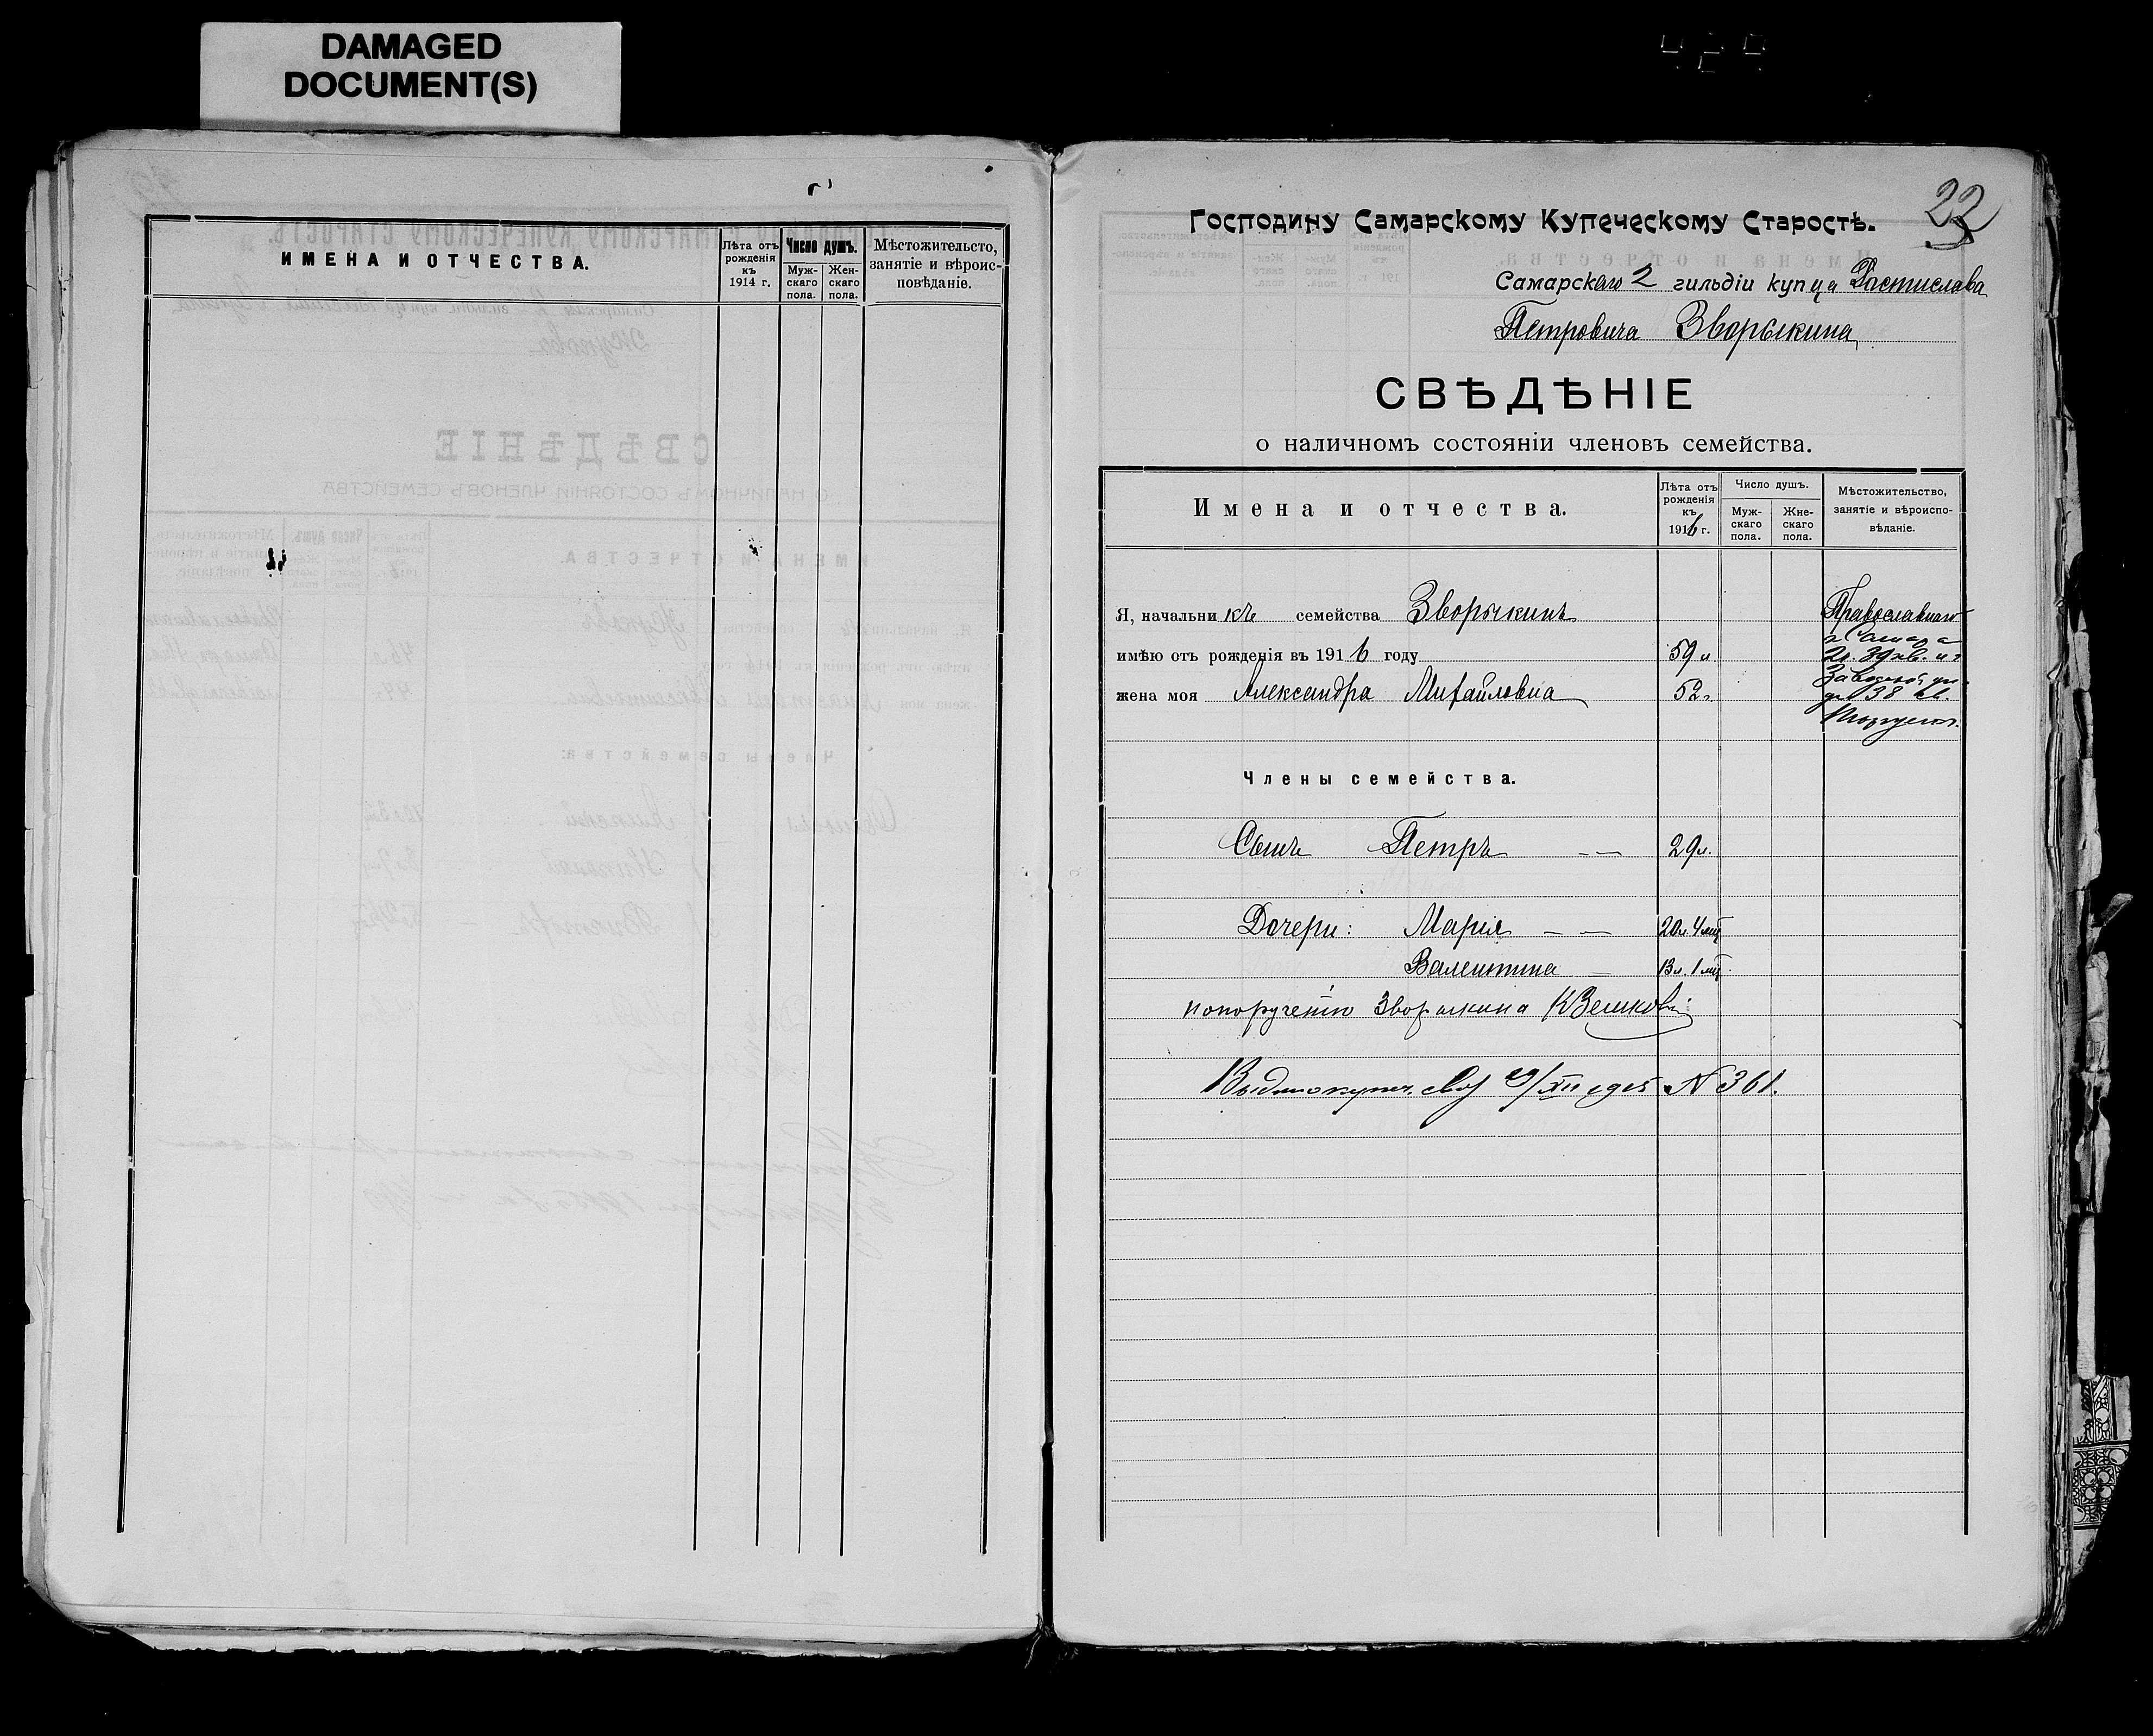 DAMAGED
DOCUMENT(S)
ИМЕНА И ОТЧЕСТВА.
Лѣта отъ рожденія къ 1914 г.
Число душъ.
Муж-скаго пола.
Жен-скаго пола.
Мѣстожительсто, занятіе и вѣроис-повѣданіе.
22
Господину Самарскому Купеческому Старостѣ.
Самарскаго 2 гильдіи купца Ростислава
Петровича Зворыкина
СВѢДѢНІЕ
о наличномъ состояніи членовъ семейства.
Имена и отчества.
Лѣта отъ рожденія къ 1916 г.
Число душъ.
Муж-скаго пола.
Жне-скаго пола.
Мѣстожительство, занятіе и вѣроиспо-вѣданіе.
Я, начальникъ семейства Зворыкинъ
Православнаго
г. Самара
имѣю отъ рожденія въ 1916 году 59 л.
Заводской ул.
жена моя Александра Михайловна 52 г.
д. 38
Члены семейства.
Сынъ Петръ — — 29 л.
Дочери: Марія — — 20 л. 4 мц
Валентина — 13 л. 1 мц.
по порученію Зворыкина
29/XII 1915 N 361.